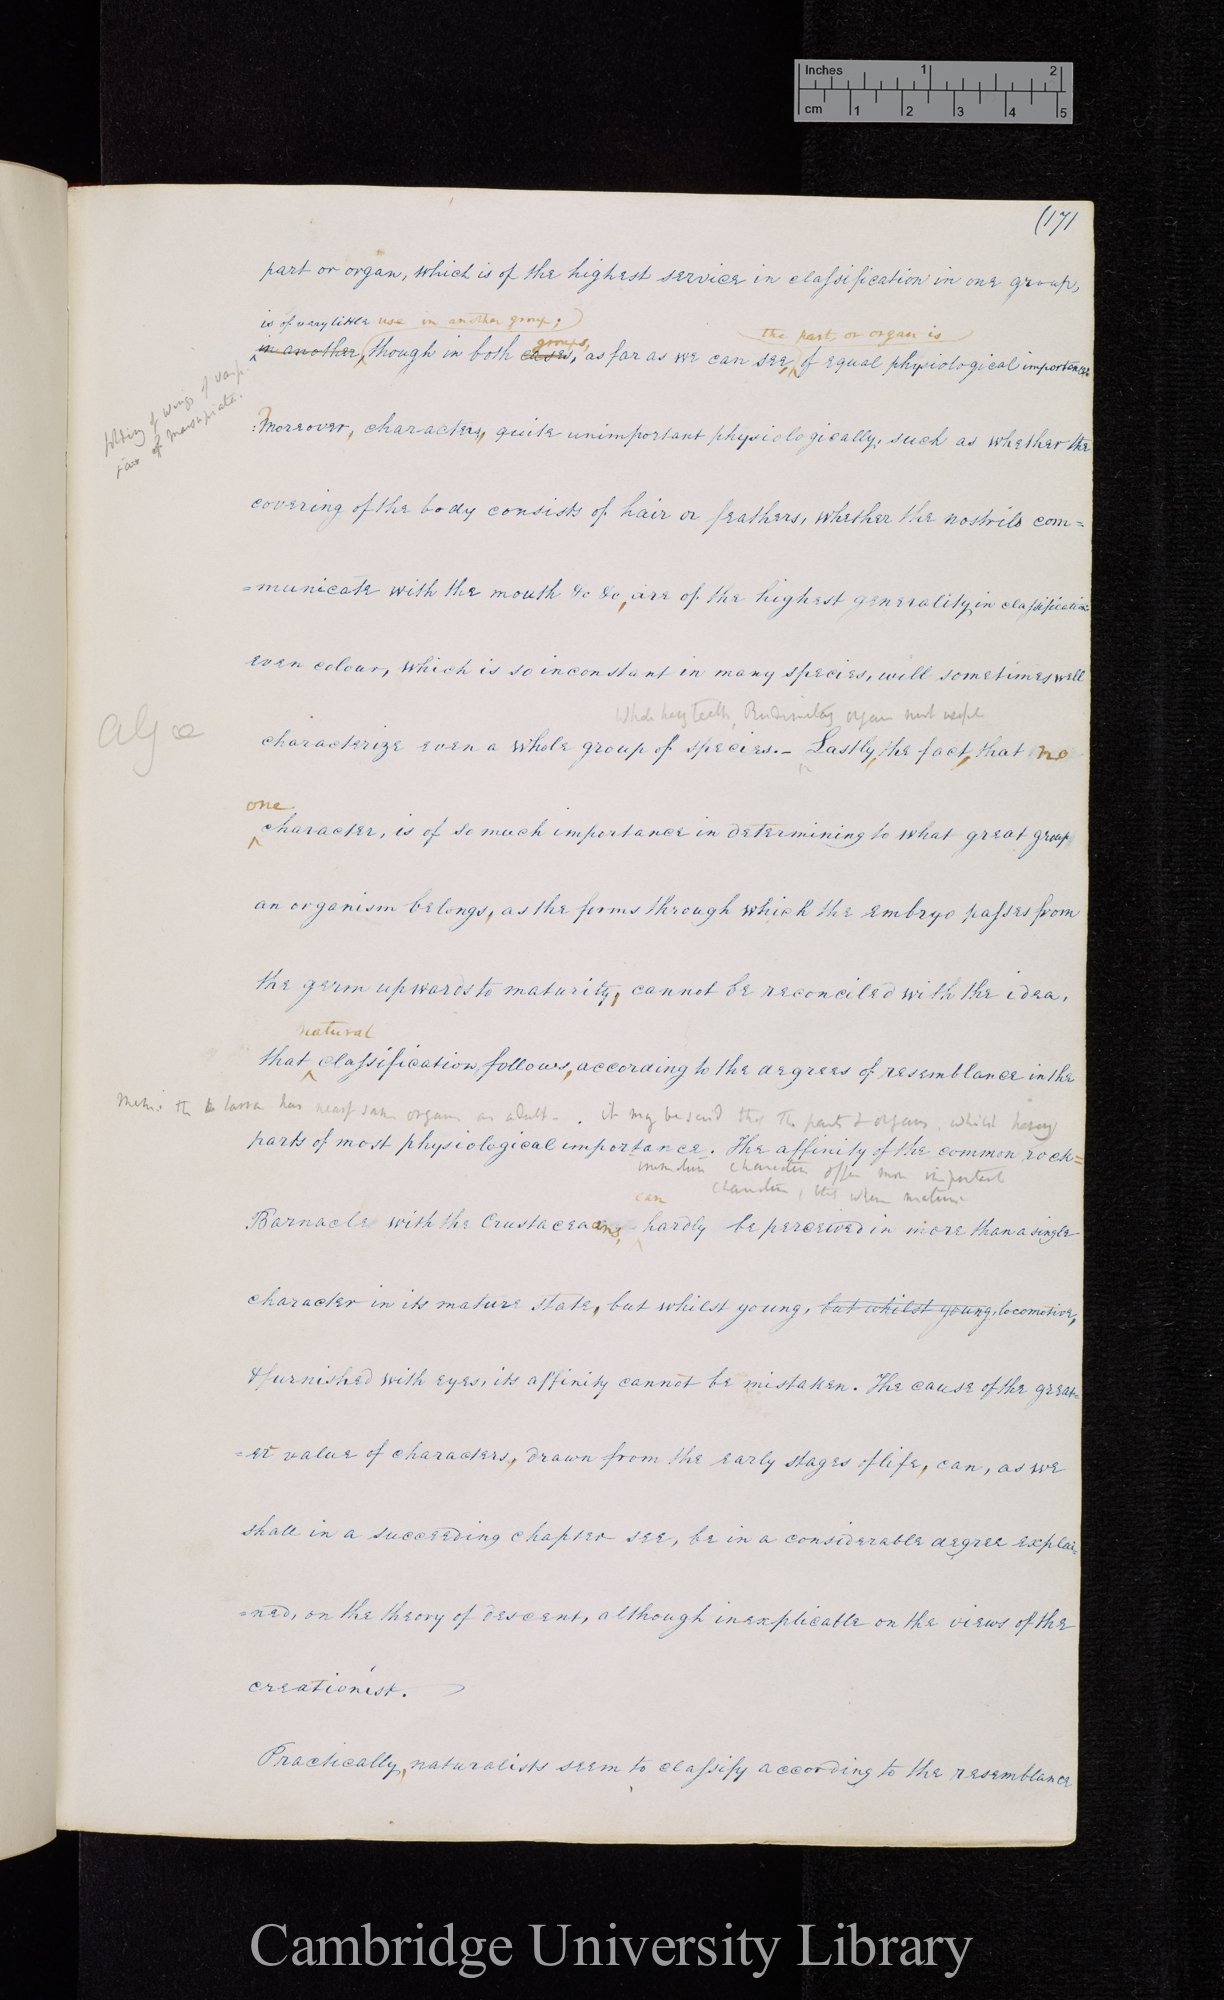 Inches 1 2
cm 1 2 3 4 5
(171
part or organ, which is of the highest service in classification in one group,
is of very little use in another group;
the part or organ is
in another, though in both classes, groups, as far as we can see, of equal physiological importance.
folding of wings of
jaw of marsupiata.
Moreover, characters, quite unimportant physiologically, such as whether the
covering of the body consists of hair or feathers, whether the nostrils com=
=municate with the mouth &c &c, are of the highest generality in classification
even colour, which is so inconstant in many species, will sometimes well
Algæ
Rudimentary organ most useful
characterize even a whole group of species. – Lastly, the fact, that no
one
character, is of so much importance in determining to what great group
an organism belongs, as the forms through which the embryo passes from
the germ upwards to maturity, cannot be reconciled with the idea,
natural
that classification follows, according to the degrees of resemblance in the
the larva has nearly same organs as adult – . it may be said that the parts & organs, whilst having
parts of most physiological importance. The affinity of the common rock=
immature character offer more important
characters, but when mature
can
Barnacle with the Crustaceans, hardly be perceived in more than a single
character in its mature state, but whilst young, but whilst young, locomotive,
& furnished with eyes, its affinity cannot be mistaken. The cause of the great=
=er value of characters, drawn from the early stages of life, can, as we
shall in a succeeding chapter see, be in a considerable degree explai=
=ned, on the theory of descent, although inexplicable on the views of the
creationist.
Practically, naturalists seem to classify according to the resemblance
Cambridge University Library